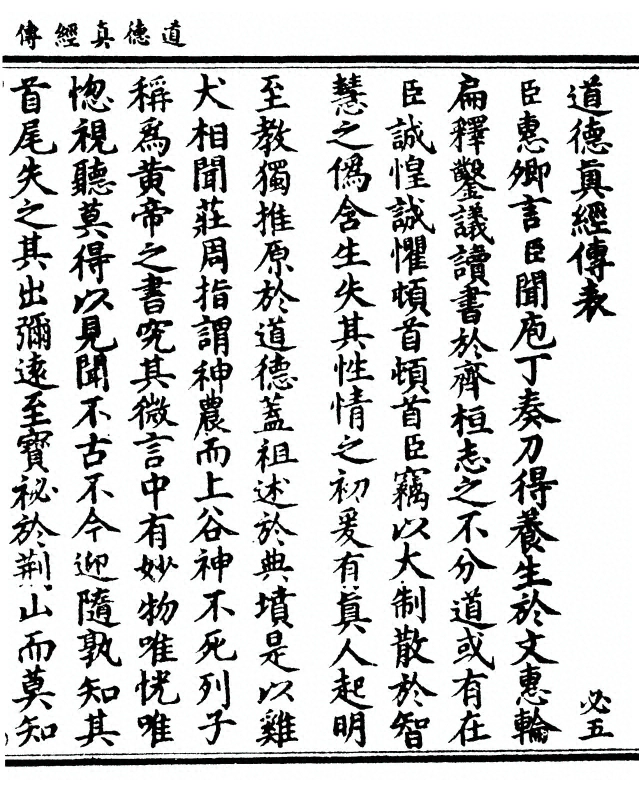 道德真經傳
道德眞經傳表
必五
臣惠卿言臣聞庖丁奏刀得養生於文惠輪
扁釋鑿議讀書於齊桓志之不分道或有在
臣誠惶誠懼頓首頓首臣竊以大制散於智
慧之僞含生失其性情之初爰有眞人起明
至教獨推原於道德蓋祖述於典墳是以雞
犬相聞莊周指謂神農而上谷神不死列子
稱爲黄帝之書究其微言中有妙物唯恍唯
惚視聽莫得以見聞不古不今迎隨孰知其
首尾失之其出彌遠至寳祕於荆山而莫知